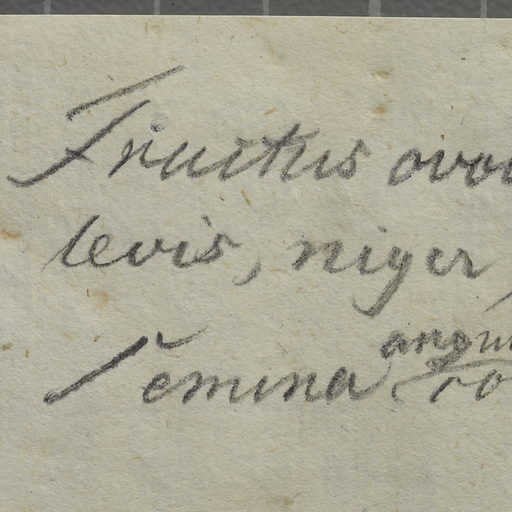 Fructus ovo
levis, niger,
Semina